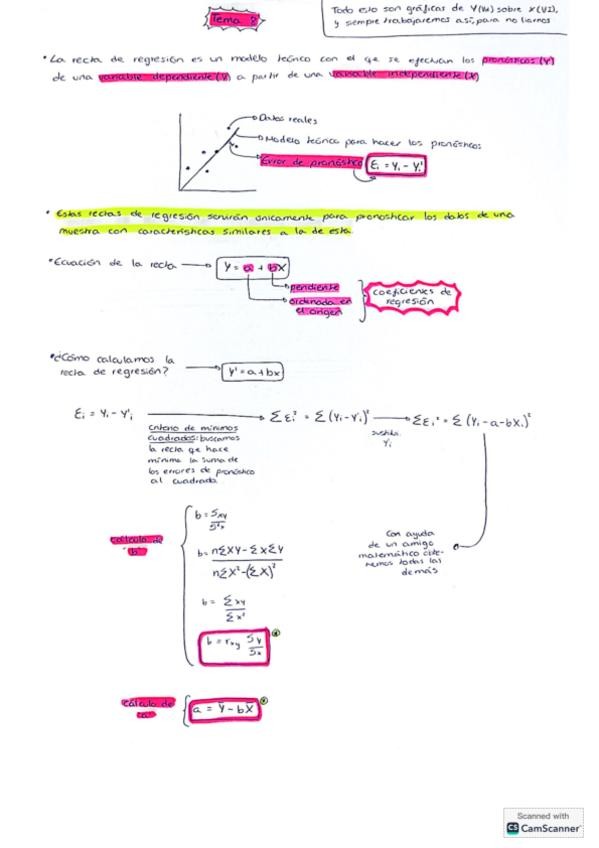 Tema 8
Todo esto son gráficas de Y(VD) sobre X(VI),
y siempre trabajaremos así, para no liarnos
• La recta de regresión es un modelo teórico con el qe se efectúan los pronósticos (Y')
de una variable dependiente (Y) a partir de una variable independiente (X)
Datos reales
Modelo teórico para hacer los pronósticos
Error de pronóstico Ɛi = Yi - Yi'
• Estas rectas de regresión servirán únicamente para pronosticar los datos de una
muestra con características similares a la de esta.
• Ecuación de la recta → Y = a + bX
pendiente
ordenada en
el origen
coeficientes de
regresión
• ¿Cómo calculamos la
recta de regresión? → Y' = a + bx
Ɛi = Yi - Y'i → ΣƐi² = Σ(Yi - Y'i)² → ΣƐi² = Σ(Yi - a - bXi)²
Criterio de mínimos
cuadrados: buscamos
la recta qe hace
mínima la suma de
los errores de pronóstico
al cuadrado
Con ayuda
de un amigo
matemático obte-
nemos todas las
demás
Cálculo de
"b"
b = Sxy / S²x
b = nΣXY - ΣXΣY / nΣX² - (ΣX)²
b = Σxy / Σx²
b = rxy Sy / Sx
Cálculo de
"a"
a = Y̅ - bX̅
Scanned with
CS CamScanner